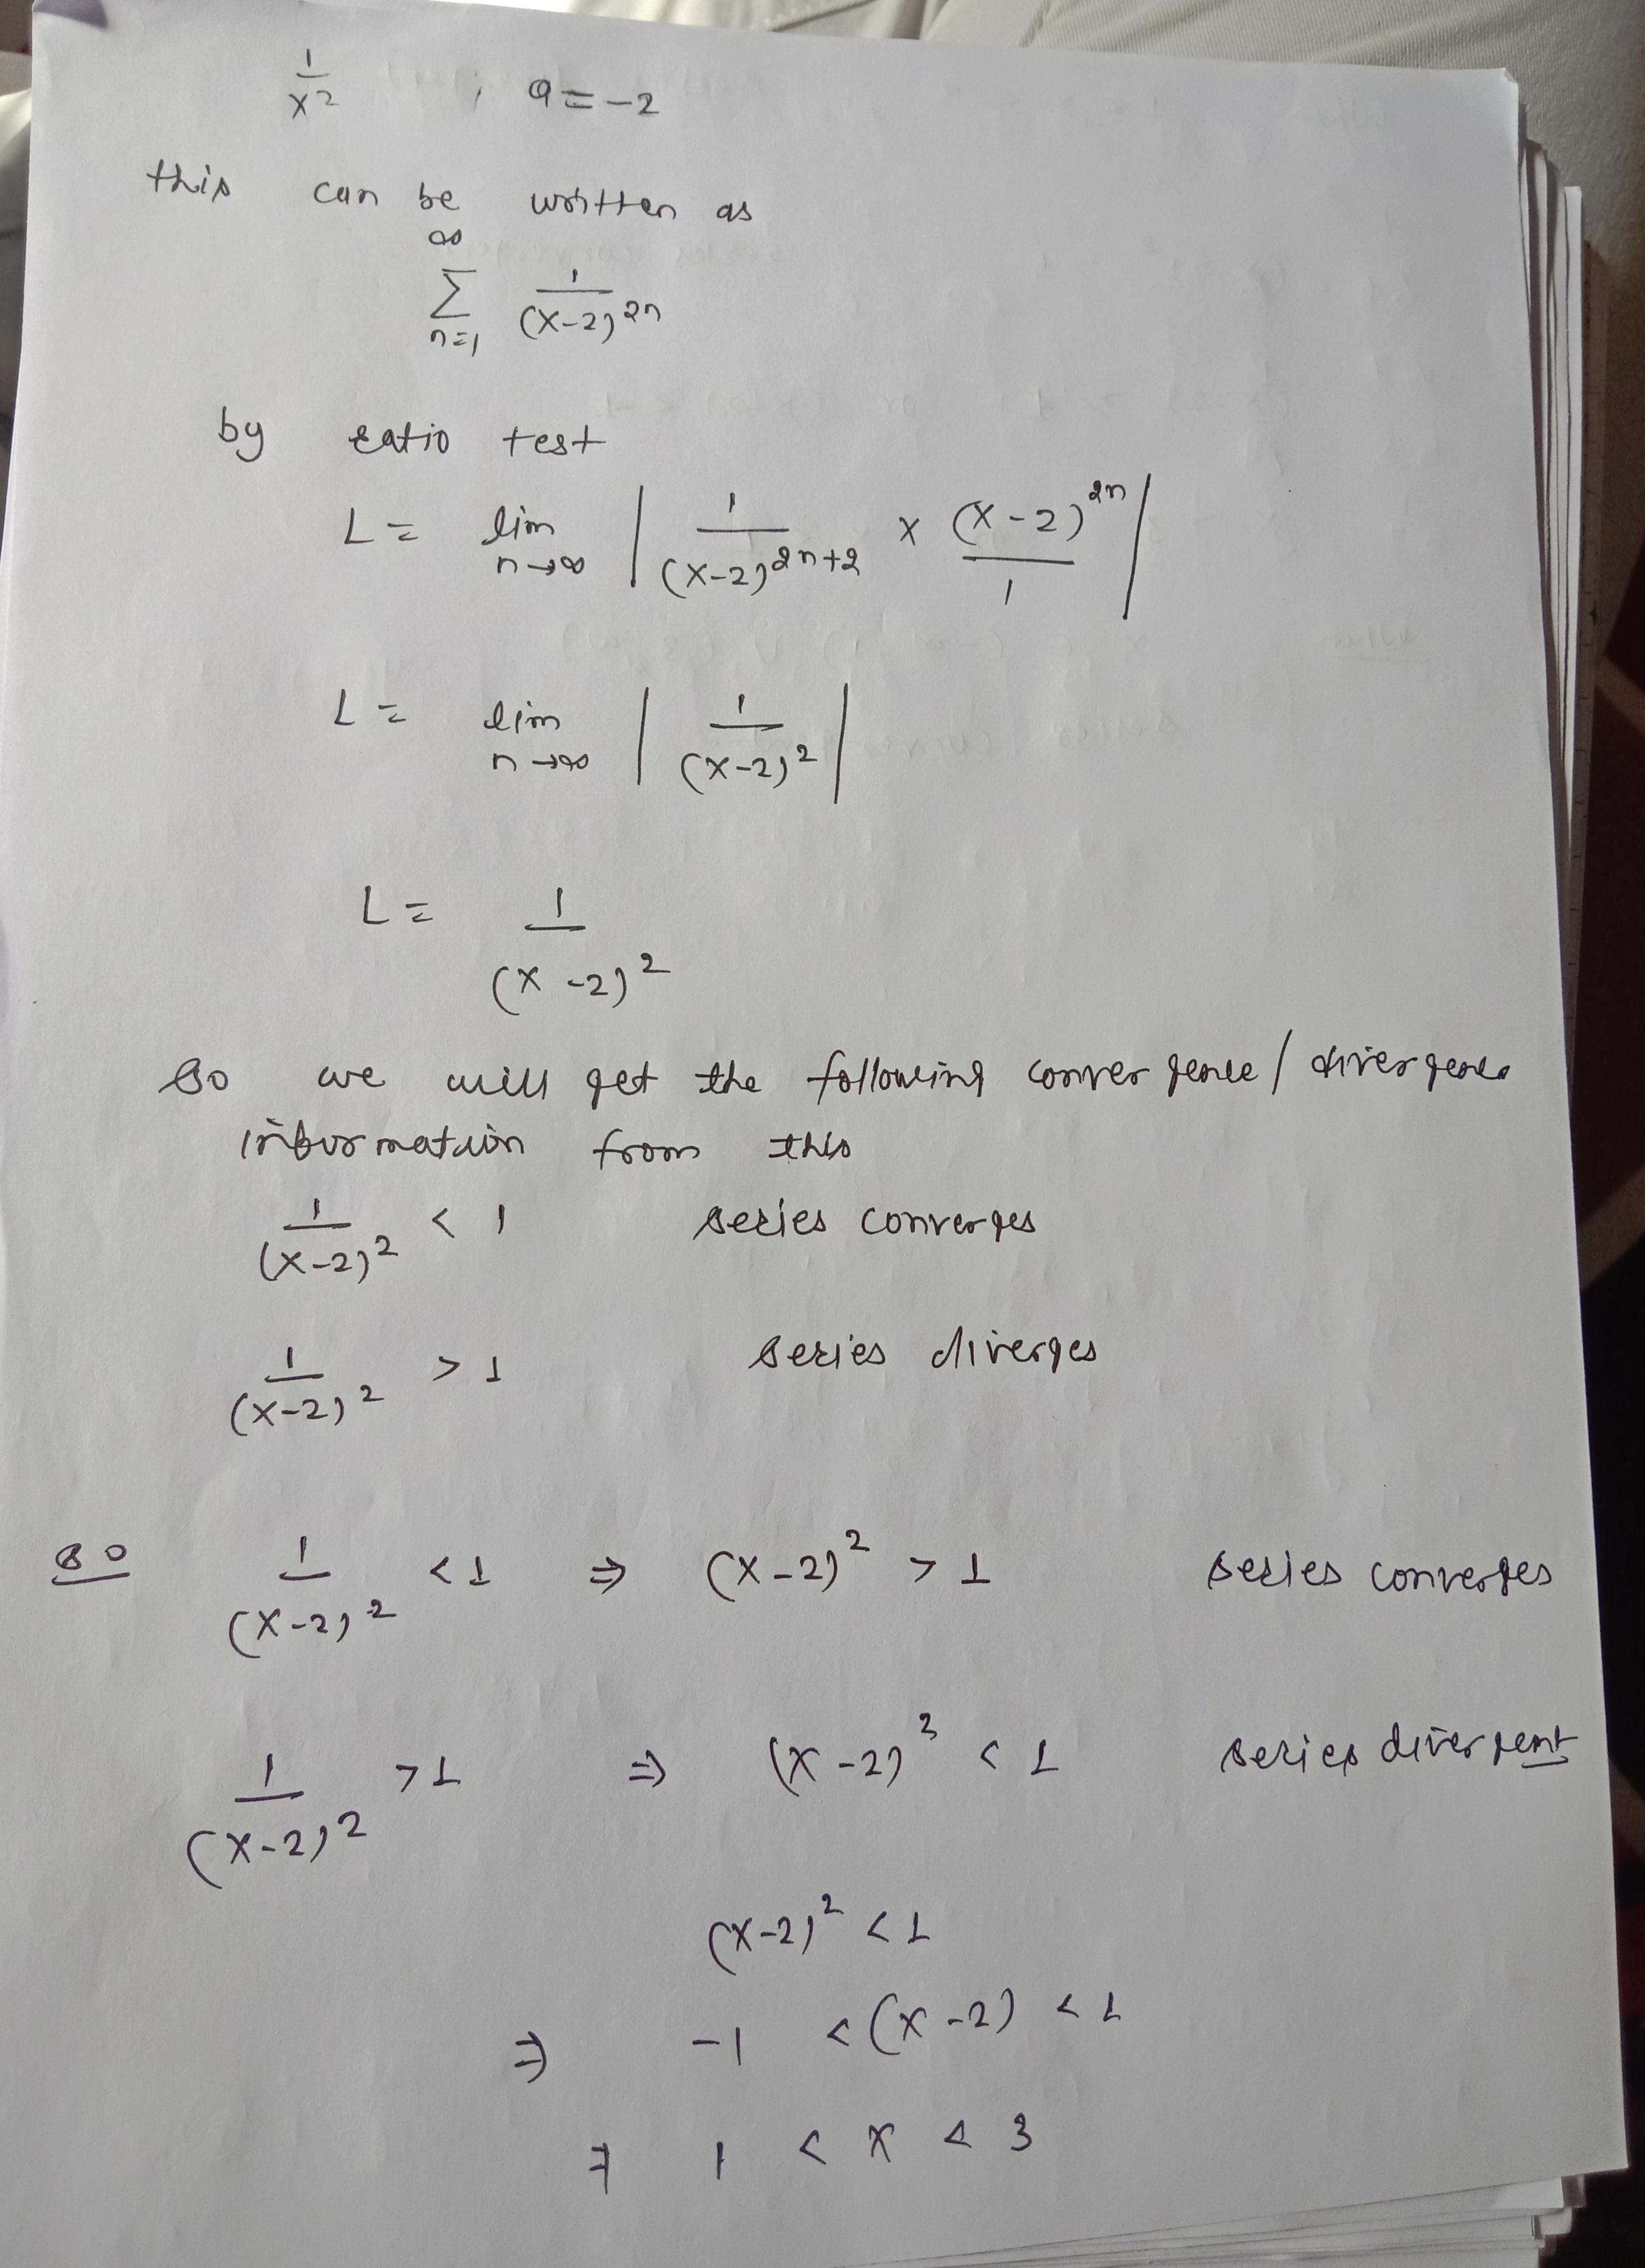 1/x² , a = -2
this can be written as
∞ Σ n=1 1/(x-2)²ⁿ
by ratio test
L = lim n→∞ | 1/(x-2)²ⁿ⁺² × (x-2)²ⁿ/1 |
L = lim n→∞ | 1/(x-2)² |
L = 1/(x-2)²
so we will get the following convergence/divergence
information from this
1/(x-2)² < 1 series converges
1/(x-2)² > 1 series diverges
so 1/(x-2)² < 1 ⇒ (x-2)² > 1 series converges
1/(x-2)² > 1 ⇒ (x-2)² < 1 series divergent
(x-2)² < 1
⇒ -1 < (x-2) < 1
⇒ 1 < x < 3